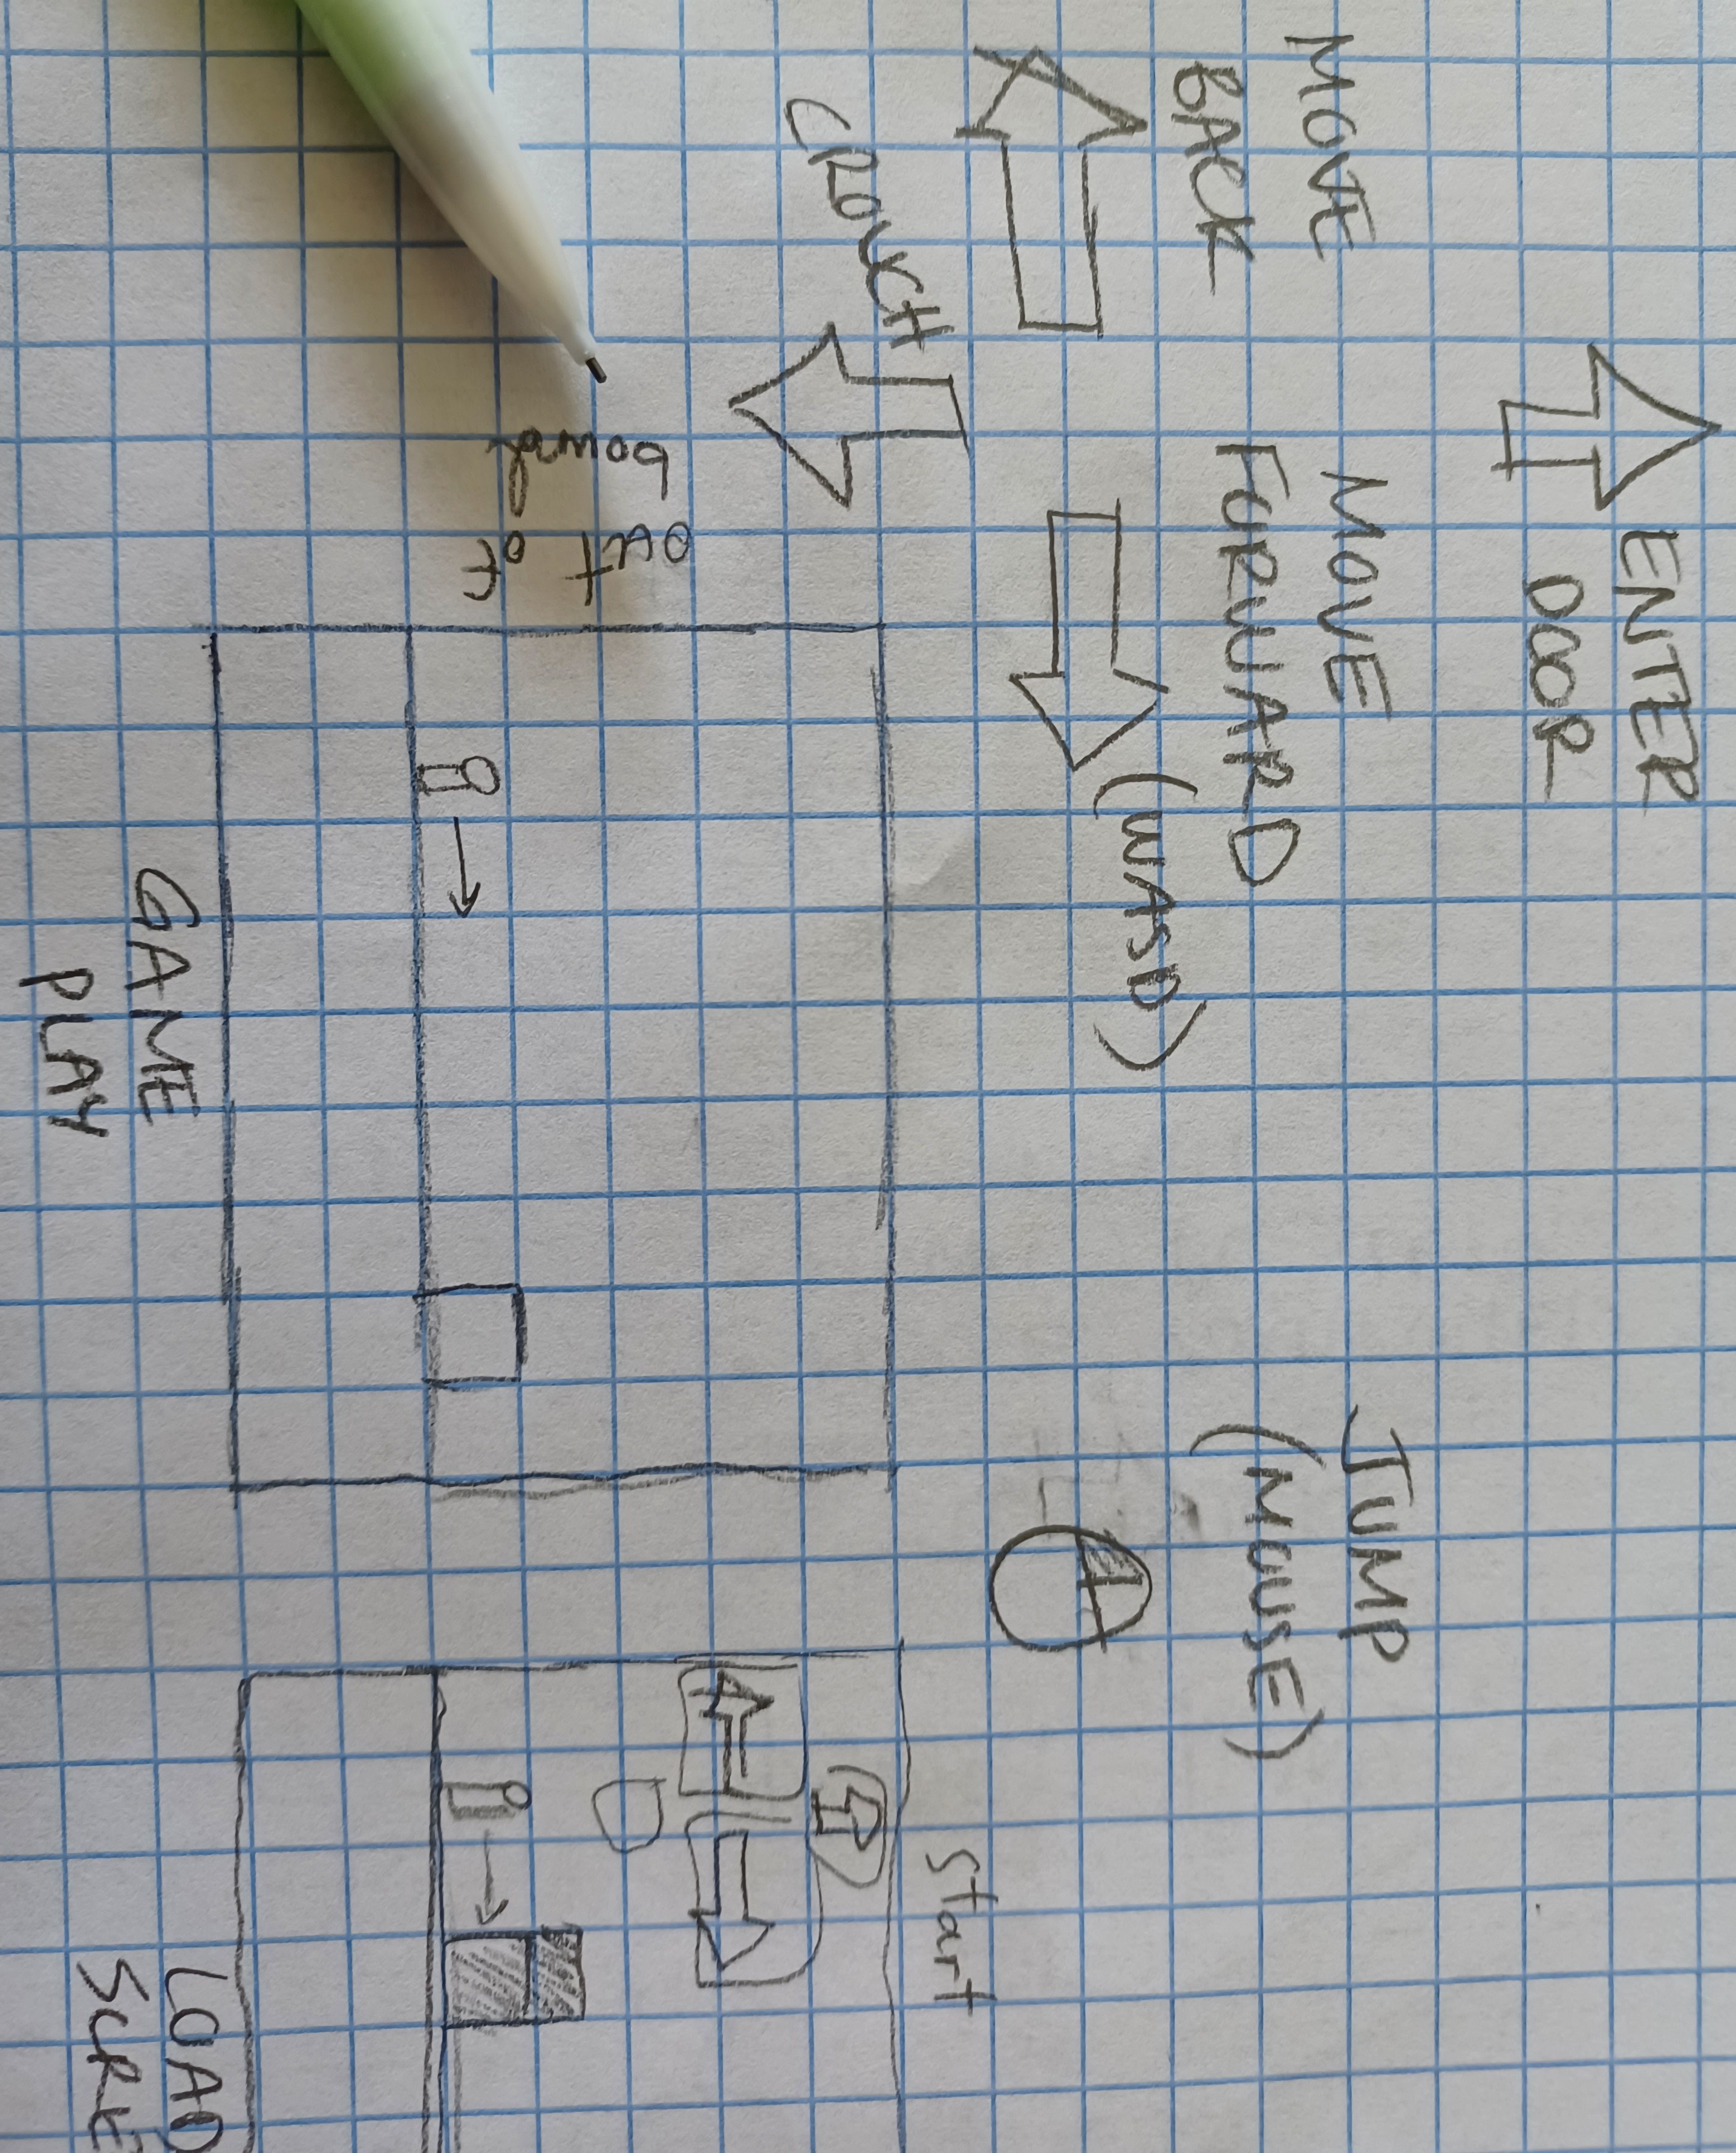 ENTER
DOOR
MOVE
BACK
MOVE
FORWARD
(WASD)
CROUCH
JUMP
(MOUSE)
out of
Start
GAME
PLAY
LOAD
SCRE